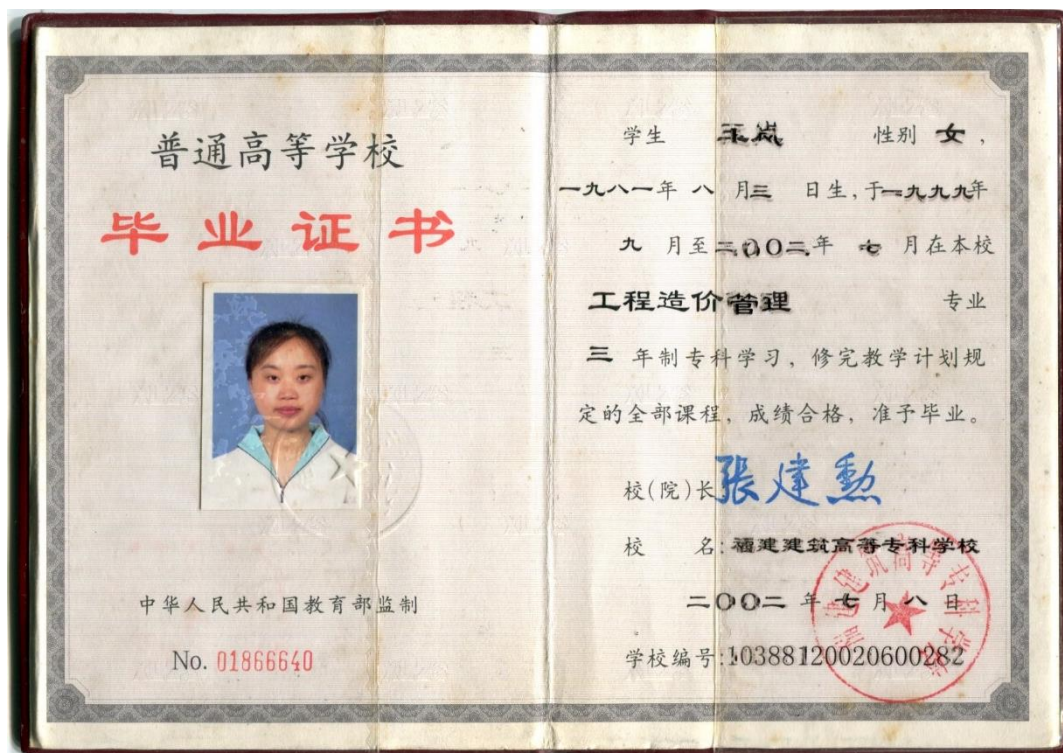 普通高等学校
毕业证书
中华人民共和国教育部监制
No. 01866640
学生 玉岚 性别 女，
一九八一年 八 月三 日生，于一九九九年
九 月至二〇〇二年 七 月在本校
工程造价管理 专业
三 年制专科学习，修完教学计划规
定的全部课程，成绩合格，准予毕业。
校(院)长 张建勋
校 名：福建建筑高等专科学校
二〇〇二 年 七 月 八 日
学校编号：10388120020600282
福建建筑高等专科学校